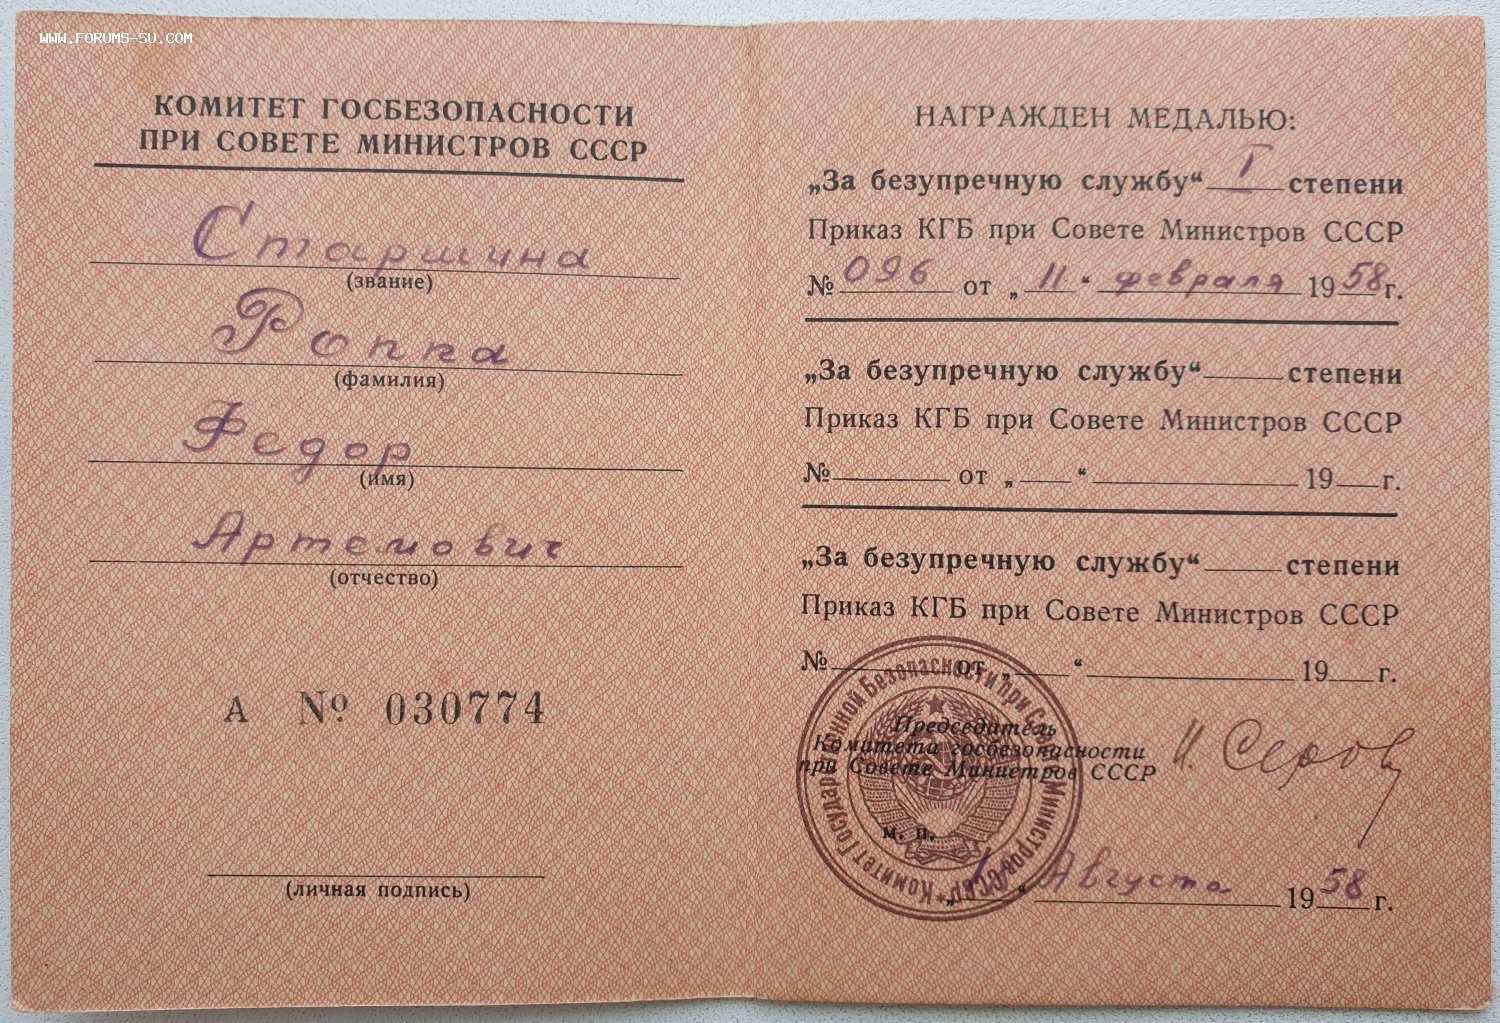 WWW.FORUMS-SU.COM
КОМИТЕТ ГОСБЕЗОПАСНОСТИ
ПРИ СОВЕТЕ МИНИСТРОВ СССР
Старшина
(звание)
Роппа
(фамилия)
Федор
(имя)
Артемович
(отчество)
А № 030774
(личная подпись)
НАГРАЖДЕН МЕДАЛЬЮ:
„За безупречную службу“ I степени
Приказ КГБ при Совете Министров СССР
№ 096 от „11“ февраля 1958 г.
„За безупречную службу“ степени
Приказ КГБ при Совете Министров СССР
№ от „ “ 19 г.
„За безупречную службу“ степени
Приказ КГБ при Совете Министров СССР
№ от „ “ 19 г.
Председатель
Комитета госбезопасности
при Совете Министров СССР
И. Серов
м. п.
„ “ Августа 1958 г.
Комитет Государственной Безопасности при Совете Министров СССР